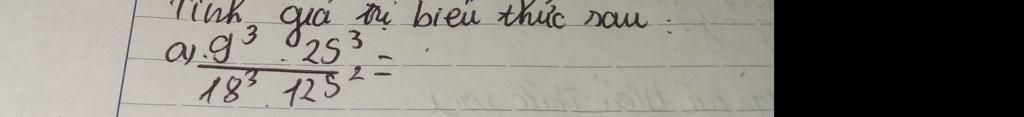 Tính giá trị biểu thức sau :
a). 9³ . 25³
18³ . 125² =